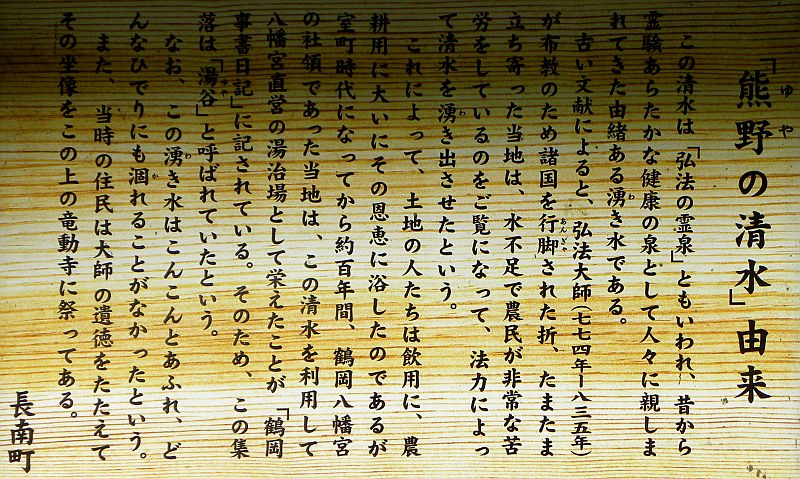 「熊野の清水」由来
この清水は「弘法の霊泉」ともいわれ、昔から
霊験あらたかな健康の泉として人々に親しま
れてきた由緒ある湧き水である。
古い文献によると、弘法大師(七七四年ー八三五年)
が布教のため諸国を行脚された折、たまたま
立ち寄った当地は、水不足で農民が非常な苦
労をしているのをご覧になって、法力によっ
て清水を湧き出させたという。
これによって、土地の人たちは飲用に、農
耕用に大いにその恩恵に浴したのであるが
室町時代になってから約百年間、鶴岡八幡宮
の社領であった当地は、この清水を利用して
八幡宮直営の湯治場として栄えたことが「鶴岡
事書日記」に記されている。そのため、この集
落は「湯谷」と呼ばれていたという。
なお、この湧き水はこんこんとあふれ、ど
んなひでりにも涸れることがなかったという。
また、当時の住民は大師の遺徳をたたえて
その坐像をこの上の竜動寺に祭ってある。
長南町